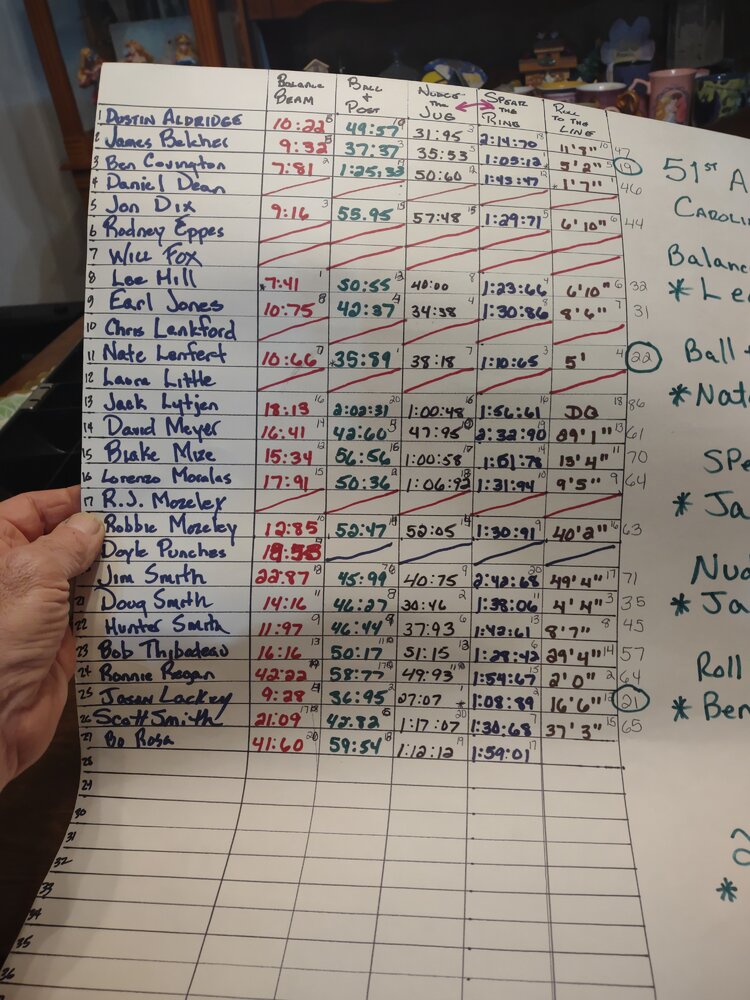 Balance Beam Ball + Post Nudge-the Jug Spear the Ring Roll to the Line
1 Dustin Aldridge 10:22 6 49:57 10 31:95 3 2:14:70 18 11'8" 10 47
2 James Belcher 9:32 5 37:37 3 35:53 5 1:03:12 5'2" 5 19
3 Ben Covington 7:81 2 1:25:33 19 50:60 12 1:43:47 12 *1'7" 1 46
4 Daniel Dean
5 Jon Dix 9:16 3 55.95 15 57:48 15 1:29:71 5 6'10" 6 44
6 Rodney Eppes
7 Will Fox
8 Lee Hill *7:41 1 50:55 13 40:00 8 1:23:66 4 6'10" 6 32
9 Earl Jones 10:75 8 42:37 4 34:38 4 1:30:86 8 8'6" 7 31
10 Chris Lankford
11 Nate Lenfert 10:66 7 *35:89 1 38:18 7 1:10:65 3 5' 4 22
12 Laura Little
13 Jack Lytjen 18:13 16 2:02:31 20 1:00:48 16 1:56:61 16 DQ 18 86
14 David Meyer 16:41 14 42:60 5 47:95 10 2:32:90 19 29'1" 13 61
15 Blake Mize 15:34 12 56:56 16 1:00:58 17 1:51:78 14 13'4" 11 70
16 Lorenzo Moralas 17:91 15 50:36 1:06:92 18 1:31:94 10 9'5" 9 64
17 R.J. Mozeley
Robbie Mozeley 12:85 10 52:47 14 52:05 14 1:30:91 9 40'2" 16 63
Doyle Punches 18:58
Jim Smith 22:87 18 45:99 40:75 9 2:42:68 20 49'4" 17 71
21 Doug Smith 14:16 11 46:27 8 30:46 2 1:38:06 11 4'4" 3 35
22 Hunter Smith 11:97 9 46:44 9 37:93 6 1:43:61 13 8'7" 8 45
23 Bob Thibadeau 16:16 13 50:17 11 51:15 13 1:28:42 6 29'4" 14 57
24 Ronnie Regan 42:22 58:77 17 49:93 1:54:67 15 2'0" 2 64
25 Jason Lackey 9:28 4 36:95 2 27:07 1 *1:08:89 2 16'6" 12 21
26 Scott Smith 21:09 17 42:82 6 1:17:07 20 1:30:68 7 37'3" 15 65
27 Bo Rosa 41:60 20 59:54 18 1:12:12 19 1:59:01 17
28
29
30
31
32
33
34
35
36
51st A
Carolin
Balanc
* Le
Ball +
* Nate
Spe
* Ja
Nud
* Ja
Roll
* Ben
2
*